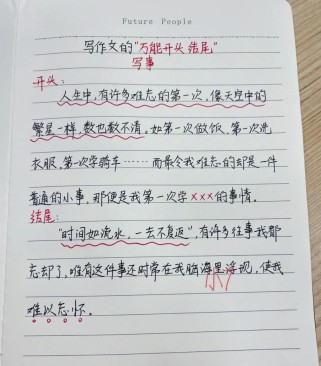 Future People
写作文的"万能开头结尾"
写事
开头:
人生中,有许多难忘的第一次,像天空中的
繁星一样,数也数不清,如第一次做饭、第一次洗
衣服,第一次学骑车……而最令我难忘的却是一件
普通的小事,那便是我第一次学×××的事情。
结尾:
"时间如流水,一去不复返",有许多往事我都
忘却了,唯有这件事还时常在我脑海里浮现,使我
难以忘怀。